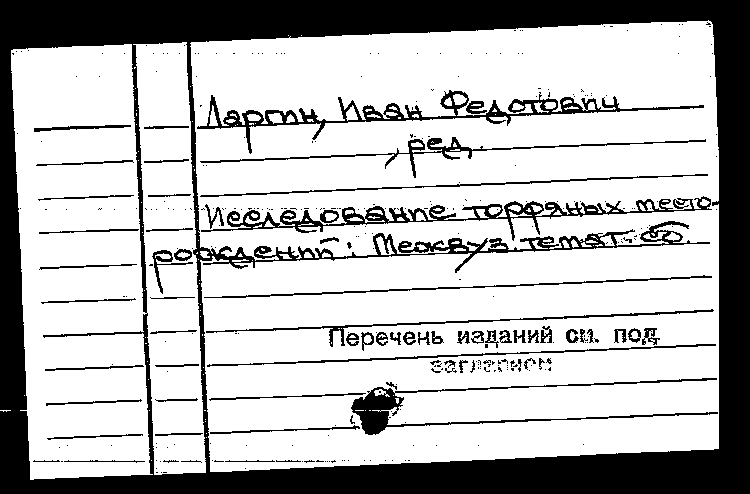 Ларгин, Иван Федотович
, ред.
Исследование торфяных место-
рождений: Межвуз. темат. сб.
Перечень изданий см. под
заглавием